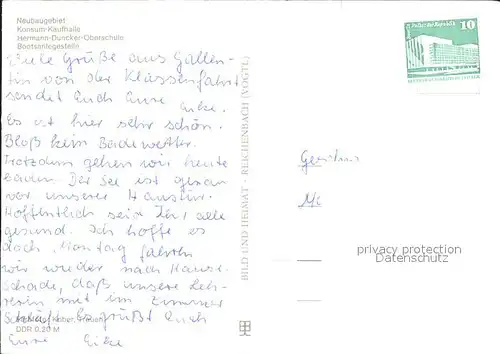 Neubaugebiet
Konsum-Kaufhalle
Hermann-Duncker-Oberschule
Bootsanlegestelle
Viele Grüße aus Gallen-
tin von der Klassenfahrt
sendet Euch Eure Eike.
Es ist hier sehr schön.
Bloß kein Badewetter.
Trotzdem gehen wir heute
baden. Der See ist genau
vor unserer Haustür.
Hoffentlich seid Ihr alle
gesund. Ich hoffe es
doch. Montag fahren
wir wieder nach Hause.
Schade, daß unsere Leh-
rerin mit im Zimmer
schläft. Es grüßt Euch
DDR 0,20 M
Eure Eike
BILD UND HEIMAT · REICHENBACH (VOGTL.)
10
privacy protection
Datenschutz